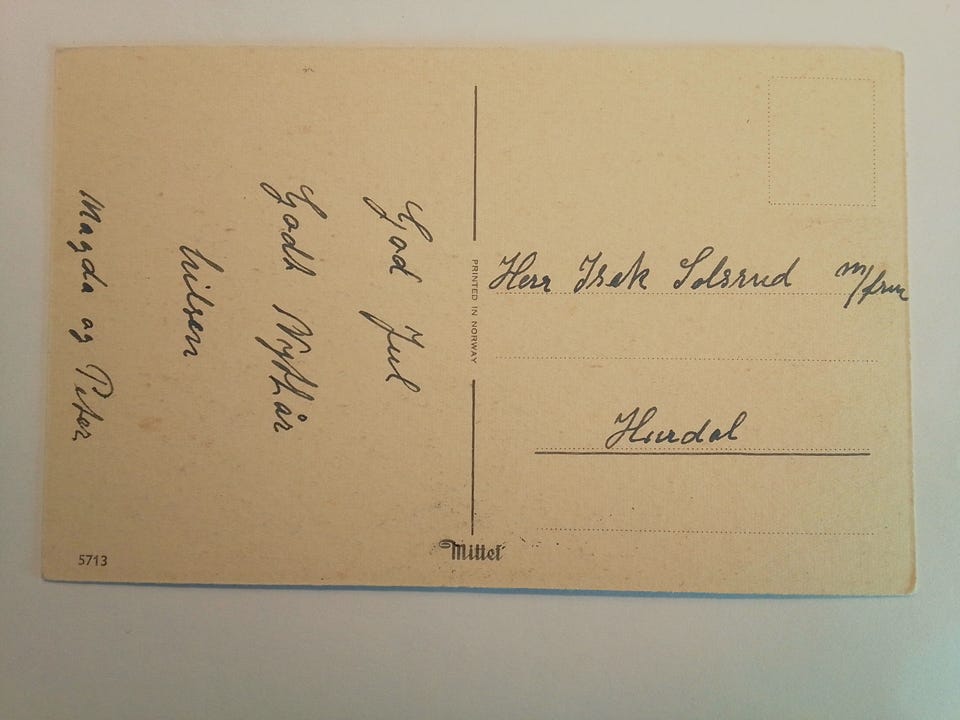 God Jul
Godt Nyttår
hilsen
Magda og Peter
PRINTED IN NORWAY
Herr Isak Solsrud m/frue
Hurdal
Mittet
5713